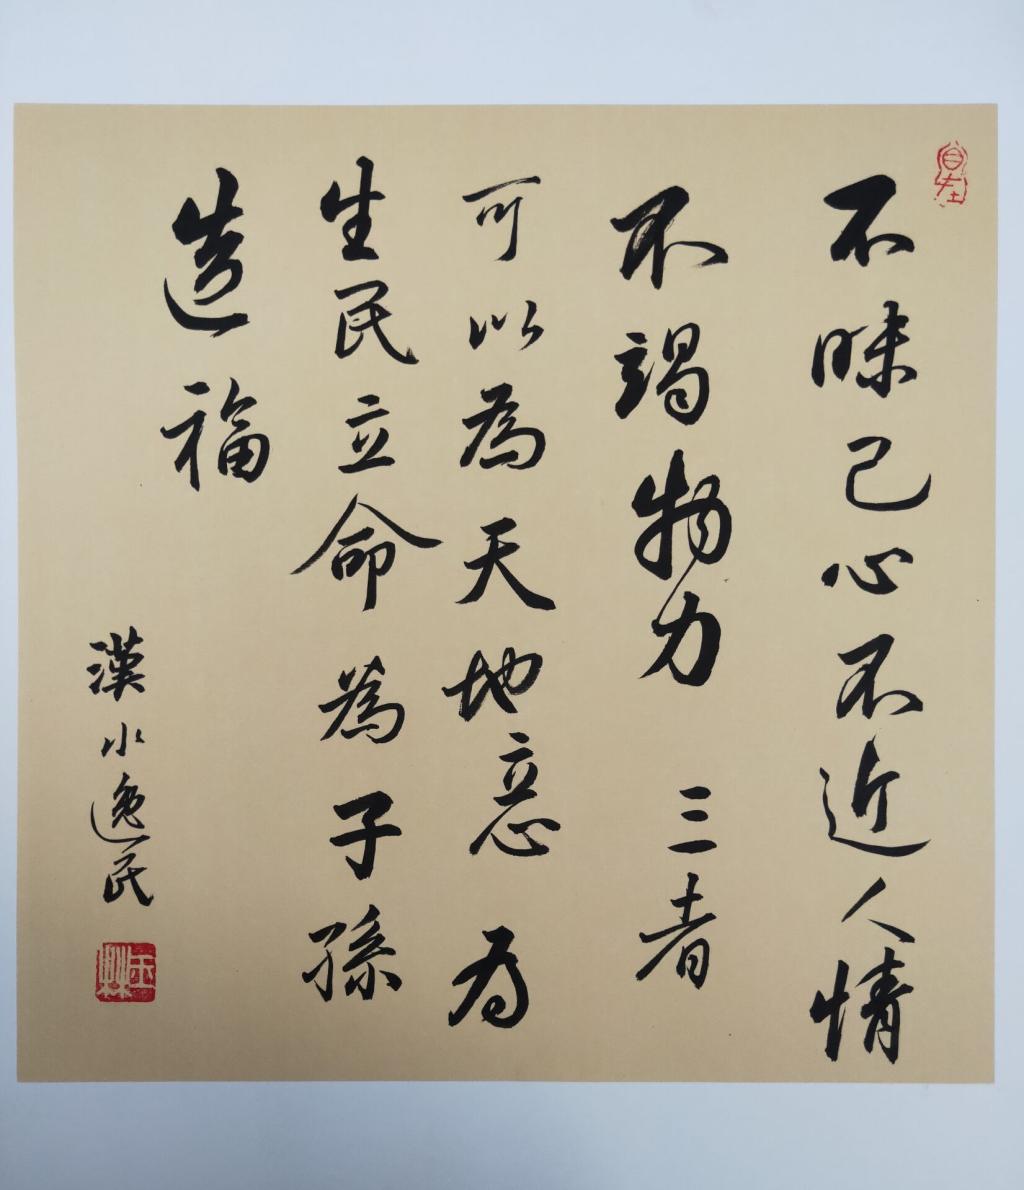 自在
不昧己心不近人情
不竭物力三者
可以為天地立心為
生民立命為子孫
造福
漢水逸民